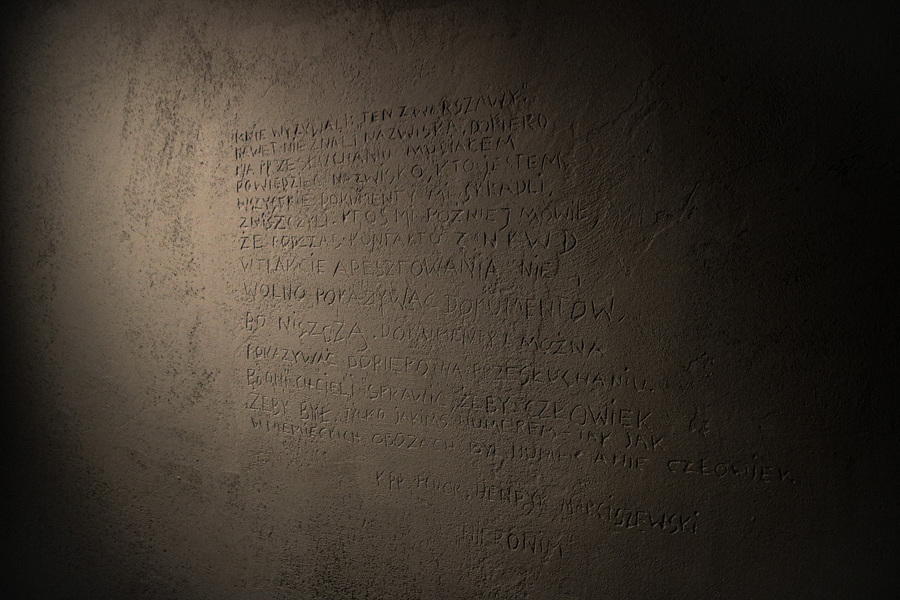 MNIE WYZYWALI: "TEN Z WARSZAWY".
NAWET NIE ZNALI NAZWISKA, DOPIERO
NA PRZESŁUCHANIU MUSIAŁEM
POWIEDZIEĆ NAZWISKO, KTO JESTEM,
WSZYSTKIE DOKUMENTY MI SKRADLI,
ZNISZCZYLI. KTOŚ MI PÓŹNIEJ MÓWIŁ,
ŻE PODCZAS KONTAKTU Z NKWD
W TRAKCIE ARESZTOWANIA NIE
WOLNO POKAZYWAĆ DOKUMENTÓW,
BO NISZCZĄ. DOKUMENTY MOŻNA
POKAZYWAĆ DOPIERO NA PRZESŁUCHANIU.
BO ONI CHCIELI SPRAWIĆ, ŻEBY CZŁOWIEK
ŻEBY BYŁ TYLKO JAKIMŚ NUMEREM - TAK JAK
W NIEMIECKICH OBOZACH BYŁ NUMER A NIE CZŁOWIEK.
HENRYK MARCISZEWSKI
"HIERONIM"